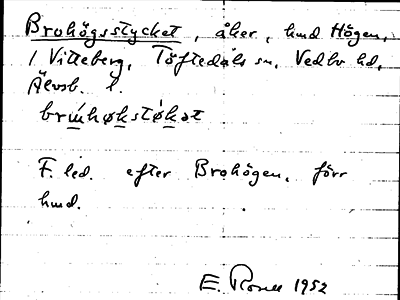 Brohögsstycket, åker, hmd Högen,
1 Vitteberg, Töftedals sn, Vedbo hd,
Älvsb. l.
brωhøkstøkət
F. led. efter Brohögen, förr
hmd.
E. Rosell 1952